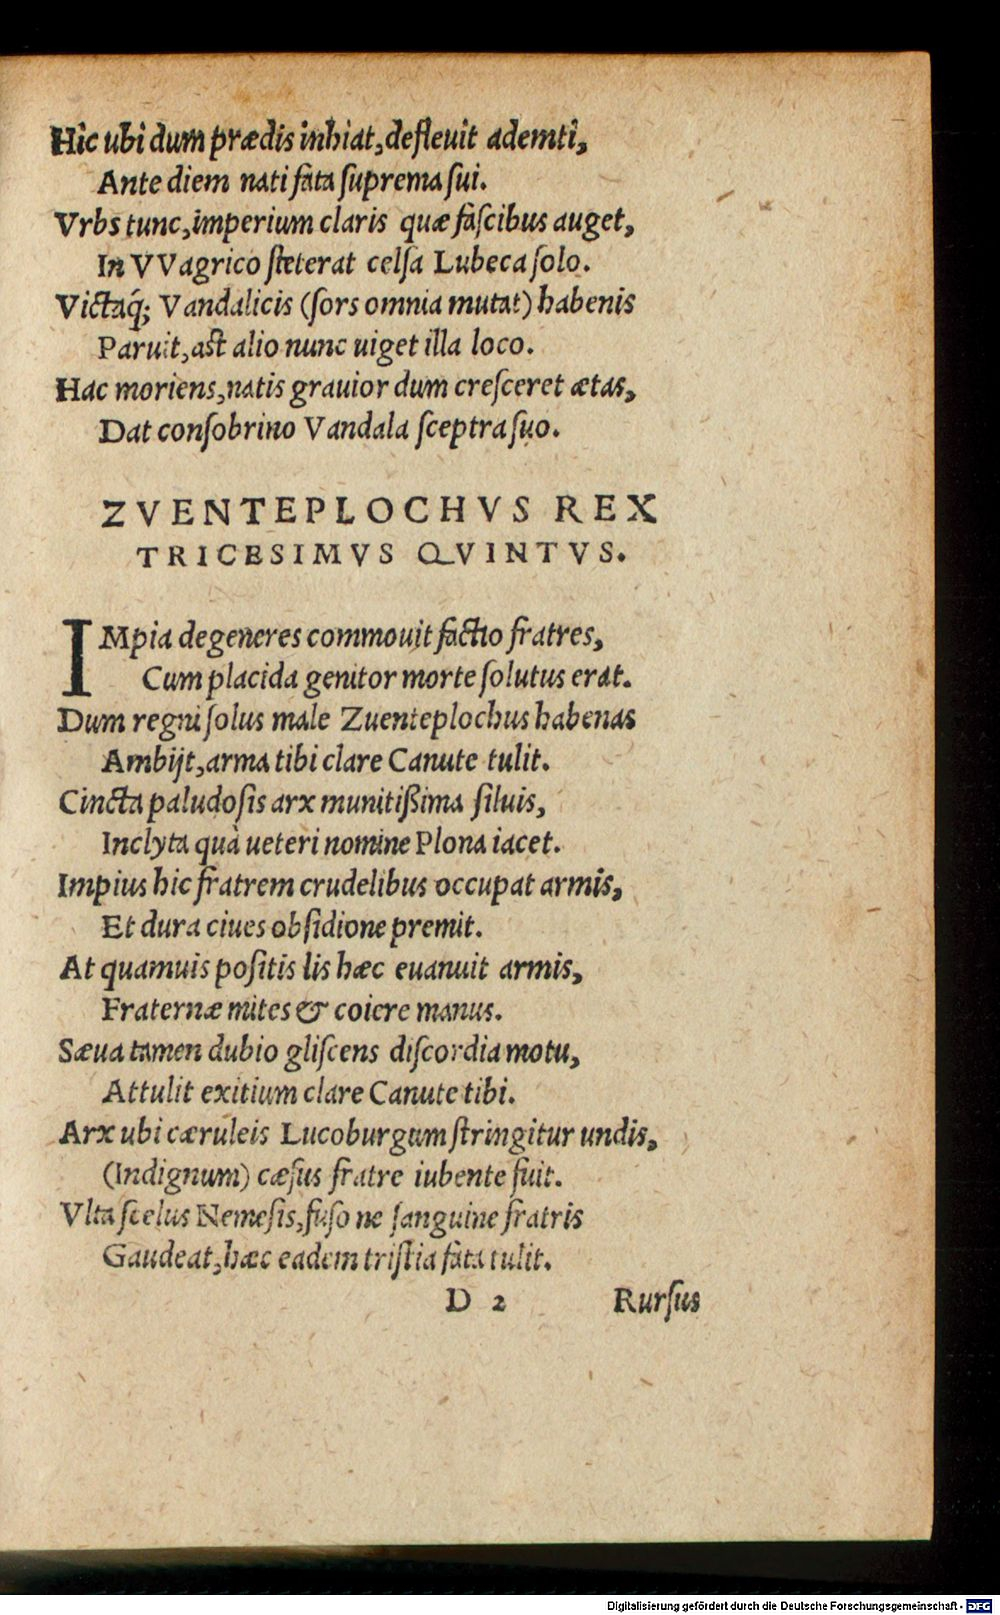 Hic ubi dum prædis inhiat, defleuit ademti,
Ante diem nati fata ſuprema ſui.
Vrbs tunc, imperium claris quæ faſcibus auget,
In VVagrico ſteterat celſa Lubeca ſolo.
Victaq́; Vandalicis (ſors omnia mutat) habenis
Paruit, aſt alio nunc uiget illa loco.
Hac moriens, natis grauior dum creſceret ætas,
Dat conſobrino Vandala ſceptra ſuo.
ZVENTEPLOCHVS REX
TRICESIMVS QVINTVS.
IMpia degeneres commouit factio fratres,
Cum placida genitor morte ſolutus erat.
Dum regni ſolus male Zuenteplochus habenas
Ambijt, arma tibi clare Canute tulit.
Cincta paludoſis arx munitißima ſiluis,
Inclyta quà ueteri nomine Plona iacet.
Impius hic fratrem crudelibus occupat armis,
Et dura ciues obſidione premit.
At quamuis poſitis lis hæc euanuit armis,
Fraternæ mites & coiere manus.
Sæua tamen dubio gliſcens diſcordia motu,
Attulit exitium clare Canute tibi.
Arx ubi cæruleis Lucoburgum ſtringitur undis,
(Indignum) cæſus fratre iubente fuit.
Vlta ſcelus Nemeſis, fuſo ne ſanguine fratris
Gaudeat, hæc eadem triſtia fata tulit.
D 2 Rurſus
Digitalisierung gefördert durch die Deutsche Forschungsgemeinschaft - DFG